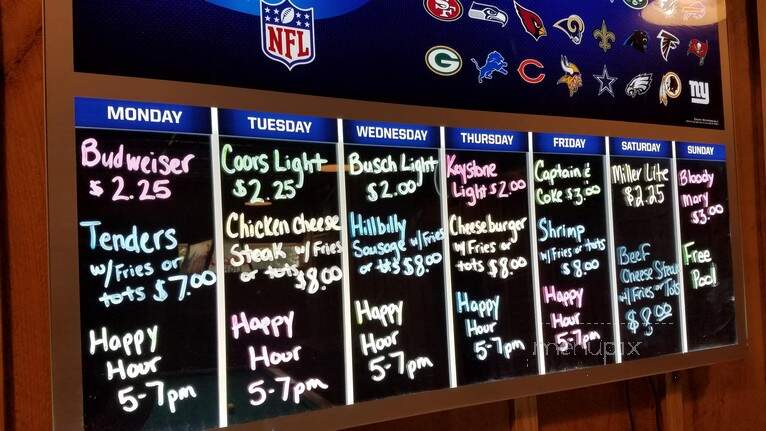 NFL
MONDAY
Budweiser
$2.25
Tenders
w/Fries or
tots $7.00
Happy
Hour
5-7pm
TUESDAY
Coors Light
$2.25
Chicken Cheese
Steak w/Fries
or tots $8.00
Happy
Hour
5-7pm
WEDNESDAY
Busch Light
$2.00
Hillbilly
Sausage w/Fries
or tots $8.00
Happy
Hour
5-7pm
THURSDAY
Keystone
Light $2.00
Cheeseburger
w/Fries or
tots $8.00
Happy
Hour
5-7pm
FRIDAY
Captain &
Coke $3.00
Shrimp
w/Fries or tots
$8.00
Happy
Hour
5-7pm
SATURDAY
Miller Lite
$2.25
Beef
Cheese Steak
w/Fries or Tots
$8.00
SUNDAY
Bloody
Mary
$3.00
Free
Pool
menupix